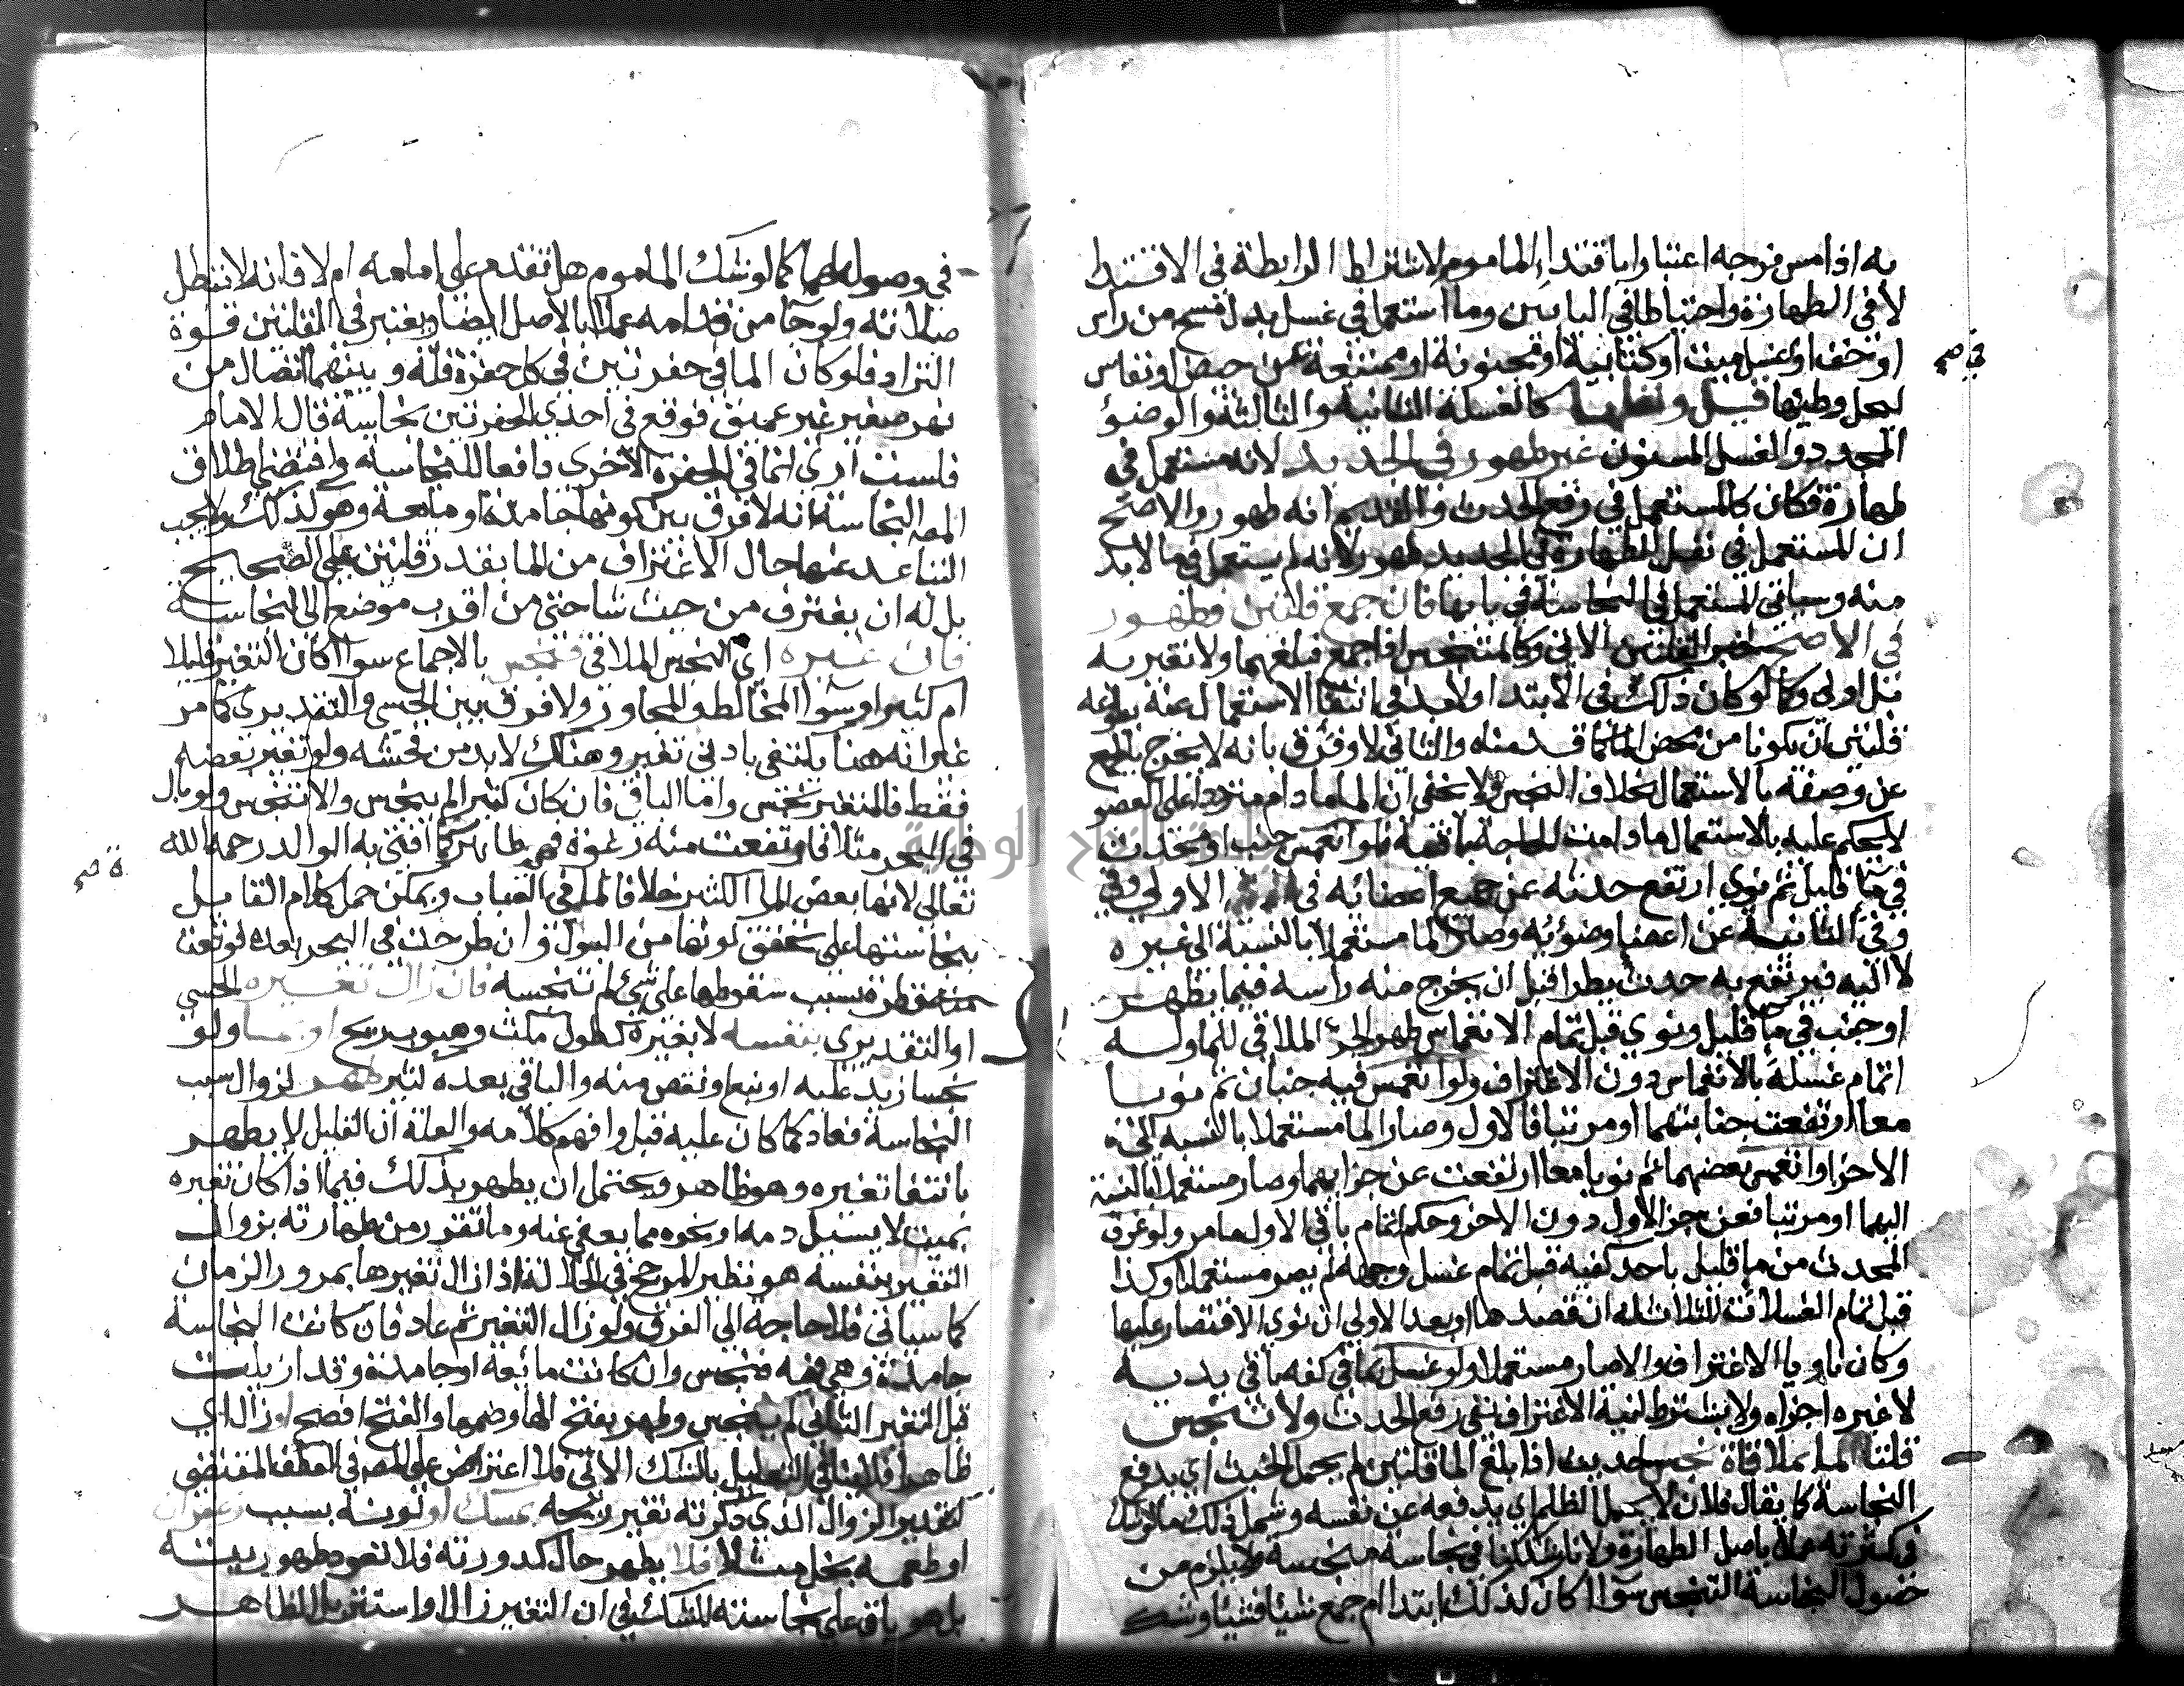 به اذا مس فرجه اعتبارا باقتداء الماموم لاشتراط الرابطة في الاقتدا
لا في الطهارة واحتياطا في البابين وما استعمل في غسل بدل مسح من راس
او خف او غسل ميت او كتابية او مجنونة او ممتنعة عن حيض او نفاس
ليحل وطئها قيل ونفلها كالغسلة الثانية والثالثة والوضؤ
المجدد والغسل المسنون غير طهور في الجديد لانه مستعمل في
طهارة فكان كالمستعمل في رفع الحدث والقديم انه طهور والاصح
ان المستعمل في نفل الطهارة في الجديد طهور لانه لم يستعمل فيما لا بد
منه وسياتي المستعمل في النجاسة في بابها فان جمع قلتين فطهور
في الاصح لخبر القلتين الاتي وكالمتنجس اذا جمع فبلغهما ولا تغير به
بل اولى وكما لو كان ذلك في الابتدا ولا بد في انتفا الاستعمال عنه ببلوغه
قلتين ان يكونا من محض الما كما قدمناه والثاني لا وفرق بانه لا يخرج بالجمع
عن وصفه بالاستعمال بخلاف النجس ولا يخفى ان الما ما دام مترددا على العضو
لا يحكم عليه بالاستعمال ما دامت الحاجة باقية فلو انغمس جنب او محدث
في ما قليل ثم نوى ارتفع حدثه عن جميع اعضائه في الاولى وفي
وفي الثانية عن اعضا وضوئه وصار الما مستعملا بالنسبة الى غيره
لا اليه فيرتفع به حدث يطرا قبل ان يخرج منه راسه فيما يظهر
او جنب في ما قليل ونوى قبل تمام الانغماس طهر الجزء الملاقي للما وله
اتمام غسله بالانغماس دون الاغتراف ولو انغمس فيه جنبان ثم نويا
معا ارتفعت جنابتهما او مرتبا فالاول وصار الما مستعملا بالنسبة الى
الاخر او انغمس بعضهما ثم نويا معا ارتفعت عن جزايهما وصار مستعملا بالنسبة
اليهما او مرتبا فعن جز الاول دون الاخر وحكم اتمام باقي الاول ما مر ولو غرف
المحدث من ما قليل باحد كفيه قبل تمام غسل وجهه لم يصر مستعملا وكذا
قبل تمام الغسلات الثلاث له ان قصدها او بعد الاولى ان نوى الاقتصار عليها
وكان ناويا الاغتراف والا صار مستعملا ولو غسل بما في كفه باقي يديه
لا غيره اجزاه ولا يشترط لنية الاغتراف نفي رفع الحدث ولا تنجس
قلتا الما بملاقاة نجس لحديث اذا بلغ الما قلتين لم يحمل الخبث اي يدفع
النجاسة كما يقال فلان لا يحمل الظلم اي يدفعه عن نفسه وشمل ذلك ما لو شك
في كثرته عملا باصل الطهارة ولانا شككنا في نجاسة منجسة ولا يلزم من
حصول النجاسة التنجس سوا اكان كذلك ابتدا ام جمع شيئا فشيئا وشك
في صح
في وصوله لهما كما لو شك الماموم هل تقدم على امامه ام لا فانه لا تبطل
صلاته ولو جا من قدامه عملا بالاصل ايضا ويعتبر في القلتين قوة
التراد فلو كان الما في حفرتين في كل حفرة قلة وبينهما اتصال من
نهر صغير غير عميق فوقع في احدى الحفرتين نجاسة قال الامام
فلست ارى انما في الحفرة الاخرى دافعا للنجاسة واقتضى اطلاق
المص النجاسة انه لا فرق بين كونها جامدة او مايعة وهو كذلك ولا يجب
التباعد عنها حال الاغتراف من الما بقدر قلتين على الصحيح
بل له ان يغترف من حيث شا حتى من اقرب موضع الى النجاسة
فان غيره اي النجس الملاقي فنجس بالاجماع سوا اكان التغير قليلا
ام كثيرا وسوا المخالط والمجاور ولا فرق بين الحسي والتقديري كما مر
غير انه هنا يكتفى بادنى تغير وهناك لا بد من فحشه ولو تغير بعضه
فقط فالمتغير نجس واما الباقي فان كان كثيرا لم ينجس والا تنجس ولو بال
في البحر مثلا فارتفعت منه رغوة فهي طاهرة كما افتى به الوالد رحمه الله
تعالى لانها بعض الما الكثير خلافا لما في العباب ويمكن حمل كلام القايل
بنجاستها على تحقق كونها من البول وان طرحت في البحر بعرة فوقعت
منه قطرة بسبب سقوطها على شيء لم تنجسه فان زال تغيره الحسي
او التقديري بنفسه لا بغيره كطول مكث وهبوب ريح او بما ولو
نجسا زيد عليه او نبع او نقص منه والباقي بعده كثير طهر لزوال سبب
النجاسة فعاد كما كان عليه قبل وافهم كلامه والعلة ان القليل لا يطهر
بانتفا تغيره وهو ظاهر ويحتمل ان يطهر بذلك فيما اذا كان تغيره
بميت لا يسيل دمه او نحوه مما يعفى عنه وما تقرر من طهارته بزوال
التغير بنفسه هو نظير المرجح في الجلالة اذا زال تغيرها بمرور الزمان
كما سياتي فلا حاجة الى الفرق ولو زال التغير ثم عاد فان كانت النجاسة
جامدة وهي فيه فنجس وان كانت مائعة او جامدة وقد ازيلت
قبل التغير الثاني لم ينجس وطهر بفتح الها وضمها والفتح افصح او زال اي
ظاهرا فلا ينافي التعليل بالشك الاتي فلا اعتراض على المص في العطف المقتضي
لتقدير الزوال الذي ذكرته تغير ريحه بمسك او لونه بسبب زعفران
او طعمه بخل مثلا فلا يطهر حال كدورته فلا تعود طهوريته
بل هو باق على نجاسته للشك في ان التغير زال او استتر بل الظاهر
ة صح